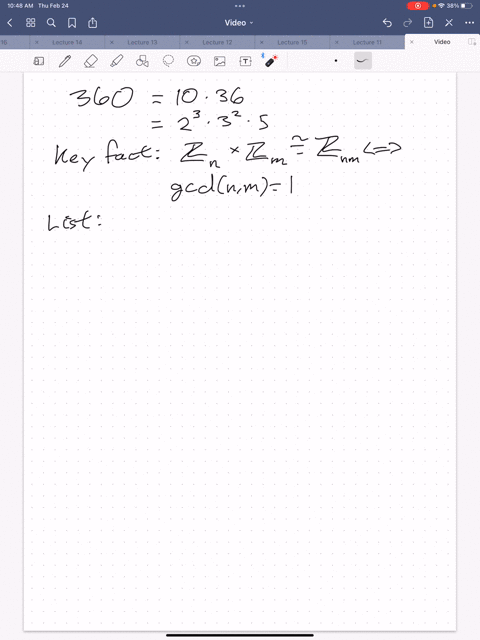 10:48 AM Thu Feb 24
38%
Video
16
Lecture 14
Lecture 13
Lecture 12
Lecture 15
Lecture 11
Video
360 = 10 · 36
= 2³ · 3² · 5
Key fact: ℤₙ × ℤₘ ≅ ℤₙₘ <=>
gcd(n,m) = 1
List: